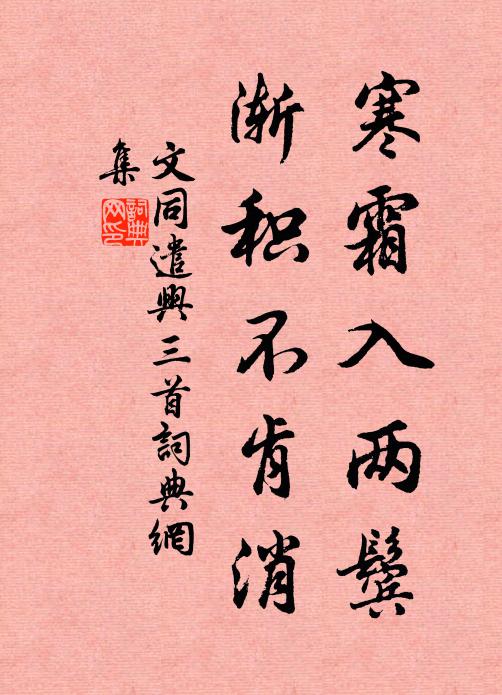 寒霜入两鬓
渐积不肯消
文同遣興三首詞典網
集
詞典
网印